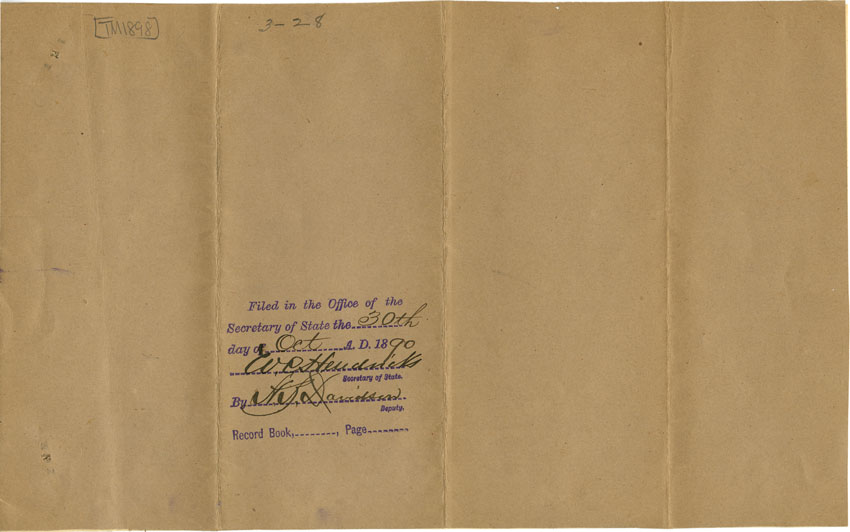 [TM1898]
3-28
Filed in the Office of the
Secretary of State the 30th
day of Oct A. D. 1890
W C Hendricks
Secretary of State.
By Davidson
Deputy.
Record Book, , Page